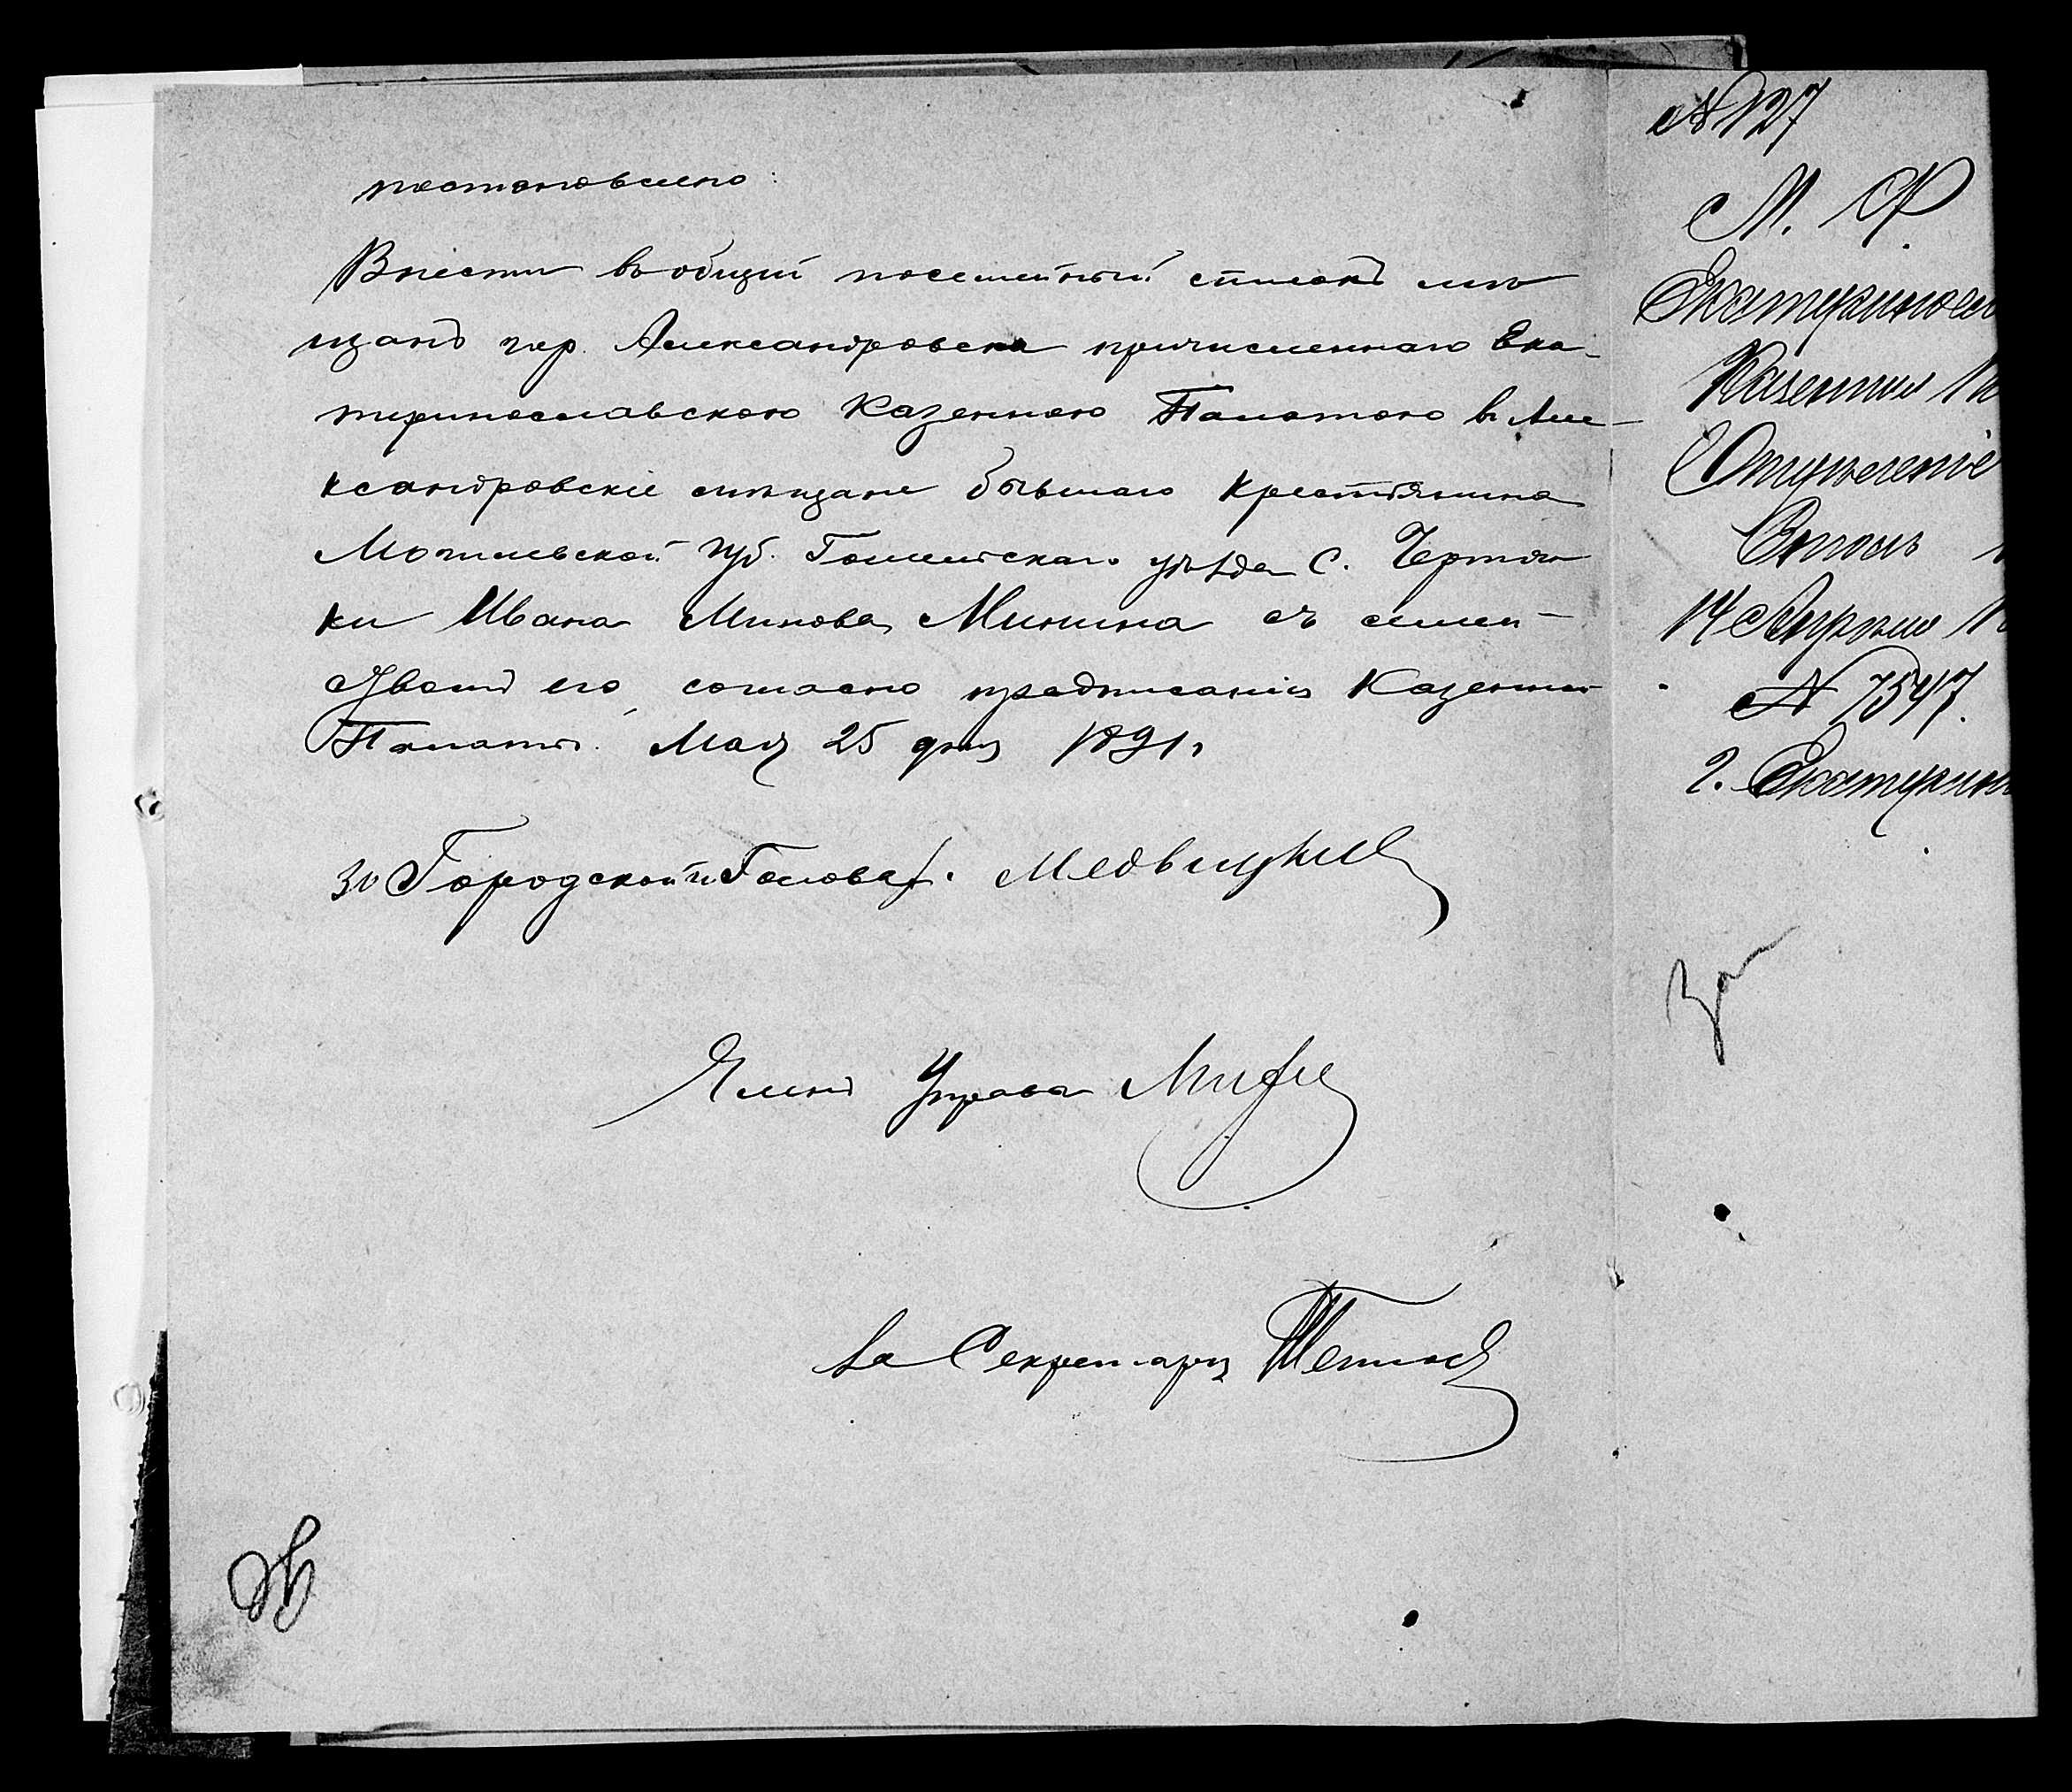 постановлено:
Внести въ общій посемейный списокъ мѣ
щанъ гор. Александровска причисленнаго Ека-
теринославскою Казенною Палатою въ Але-
ксандровскіе мѣщане бывшаго крестьянина
Могилевской губ. Гомельскаго уѣзда С. Чертян
ки Ивана Минова Минина съ семей-
ствомъ его, согласно предписанія Казенной
Палаты. Мая 25 дня 1891 г.
За Городского Голову
Членъ Управы
За Секретаря
№ 127
М. Ф.
Екатеринос
Казенная П
Отдѣленіе
Столъ
14 Апрѣля 1
№ 7547.
г. Екатерин